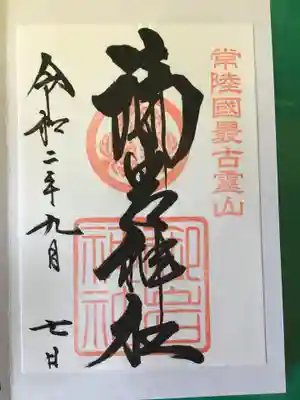 常陸國最古靈山
御岩神社
御岩
神社
令和二年九月 七日